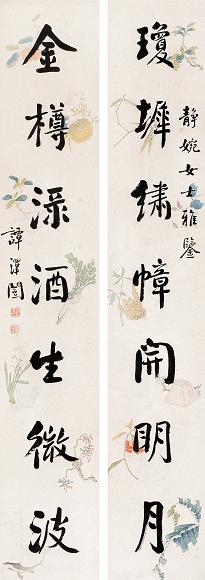 靜婉女士雅鑒
瓊墀繡幛開明月
金樽渌酒生微波
譚澤闓